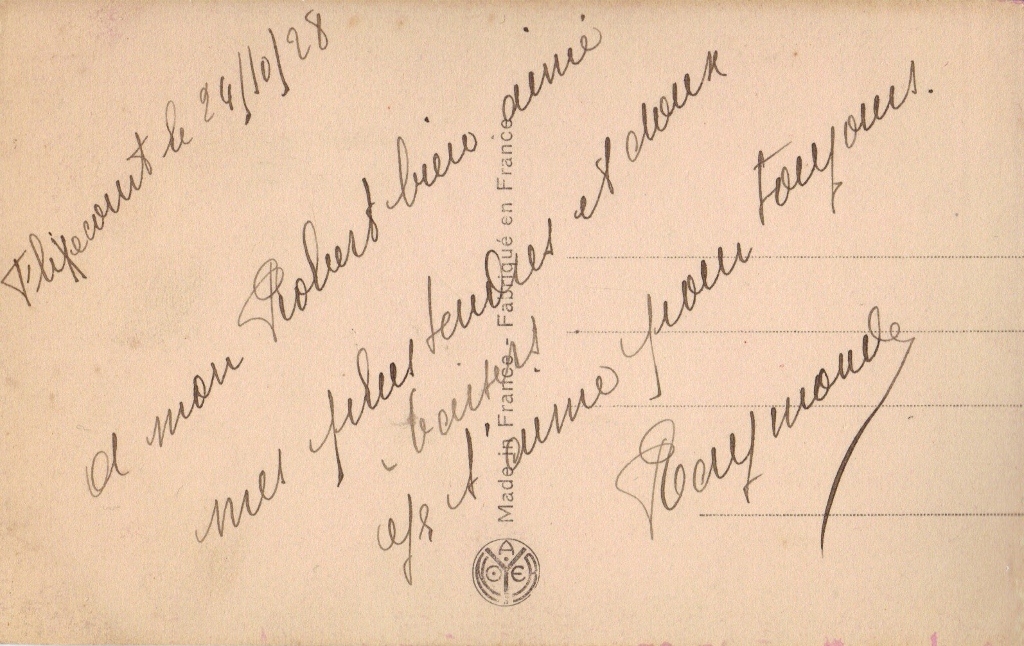 Flixecourt le 24/10/28
a mon Robert bien aimé
mes plus tendres et doux
baisers
Je t'aime pour toujours.
Raymonde
Made in France - Fabriqué en France